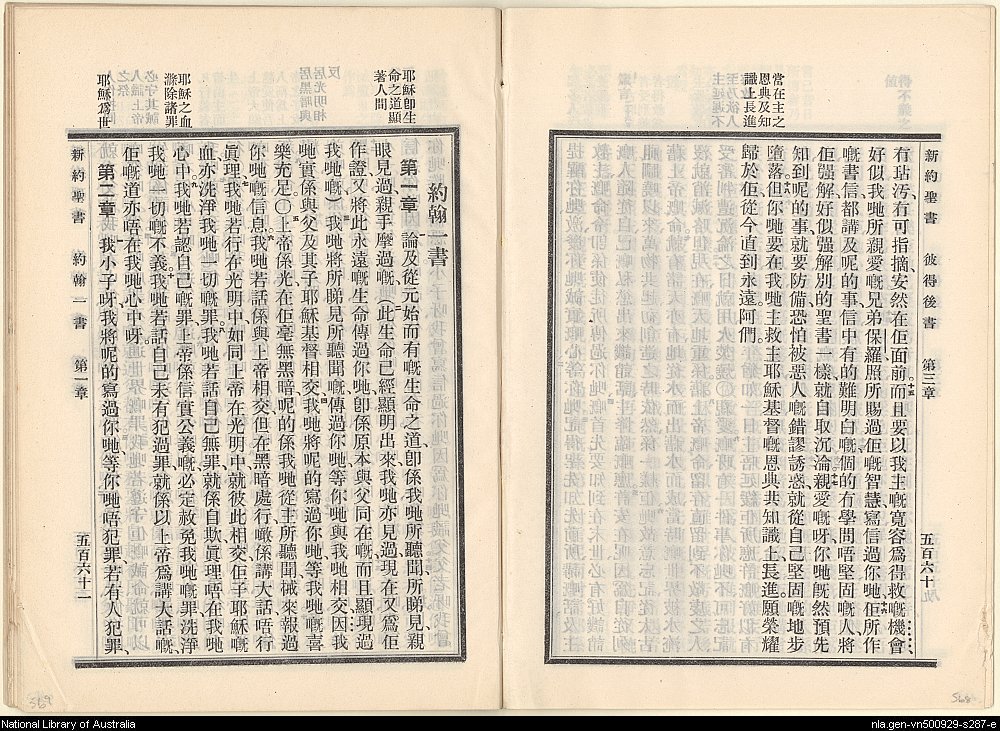 新約聖書 彼得後書 第三章 五百六十八
當在主之
恩典及知
識上長進
有玷汚、有可指摘、安然在佢面前、而且要以我主嘅寬容爲得救嘅機會、
好似我哋所親愛嘅兄弟保羅、照所賜過佢嘅智慧寫信過你哋、佢所作
嘅書信、都講及呢的事、信中有的難明白嘅、個的冇學問唔堅固嘅人、將
佢强解、好似强解別的聖書一樣、就自取沉淪、親愛嘅呀、你哋旣然預先
知到呢的事、就要防備、恐怕被惡人嘅錯謬誘惑、就從自己堅固嘅地步
墮落、但你哋要在我哋主救主耶穌基督嘅恩典、共知識上長進、願榮耀
歸於佢、從今直到永遠、阿們。
耶穌卽生
命之道顯
著人間
居光明相
居黑暗與
反
耶穌之血
滌除諸罪
人識上帝
必守其誡
耶穌爲世
約翰一書
第一章 論及從元始而有嘅生命之道、卽係我哋所聽聞、所睇見、親
眼見過、親手摩過嘅、(此生命已經顯明出來、我哋亦見過、現在又爲佢
作證、又將此永遠嘅生命傳過你哋、卽係原本與父同在嘅、而且顯現過
我哋嘅、)我哋將所睇見所聽聞嘅、傳過你哋、等你哋與我哋相交、因我
哋實係與父、及其子耶穌基督相交、我哋將呢的寫過你哋、等我哋嘅喜
樂充足、〇上帝係光、在佢毫無黑暗、呢的係我哋從主所聽聞、𠻹來報過
你哋嘅信息、我哋若話係與上帝相交、但在黑暗處行、噉係講大話、唔行
眞理、我哋若行在光明中、如同上帝在光明中、就彼此相交、佢子耶穌嘅
血、亦洗淨我哋一切嘅罪、我哋若話自己無罪、就係自欺、眞理唔在我哋
心中、我哋若認自己嘅罪、上帝係信實公義嘅、必定赦免我哋嘅罪、洗淨
我哋一切嘅不義、我哋若話自己未有犯過罪、就係以上帝爲講大話嘅、
佢嘅道亦唔在我哋心中呀。
第二章 我小子呀、我將呢的寫過你哋、等你哋唔犯罪、若有人犯罪、
新約聖書 約翰一書 第一章 五百六十二
569
568
National Library of Australia
nla.gen-vn500929-s287-e